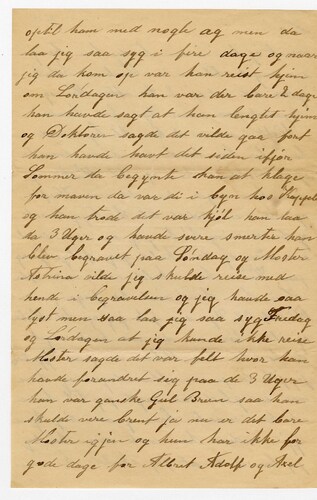 optil ham med nogle ag men da
laa jeg saa syg i fire dage og naar
jeg da kom op var han reist hjem
om Lordagen han var der bare 2 dage
han havde sagt at ham lengtet hjem
og Doktoren sagde det vilde gaa fort
han havde havt det siden ifjor
Sommer da begynte han at klage
for maven da var di i byen hos
og han trode det var kjøl han laa
da 3 Uger og havde svere smerter han
blev begravet paa Sondag og Moster
Katrina vilde jeg skulde reise med
hende i begravelsen og jeg havde saa
lyst men saa laa jeg saa syg Fredag
og Lordagen at jeg kunde ikke reise
Moster sagde det var felt hvor han
havde forandret sig paa de 3 Uger
han var ganske Gul Brun saa han
skulde vere brent ja nu er det bare
Moster igjen og hun har ikke for
gode dage for Albret Adolf og Axel